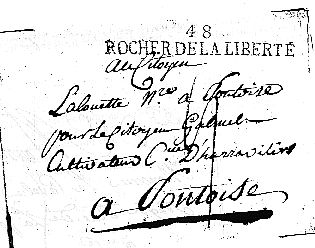 48
ROCHER DE LA LIBERTÉ
au Citoyen
Lalouette Nre a Pontoise
pour le Citoyen Gabriel
Cultivateur C.
a Pontoise